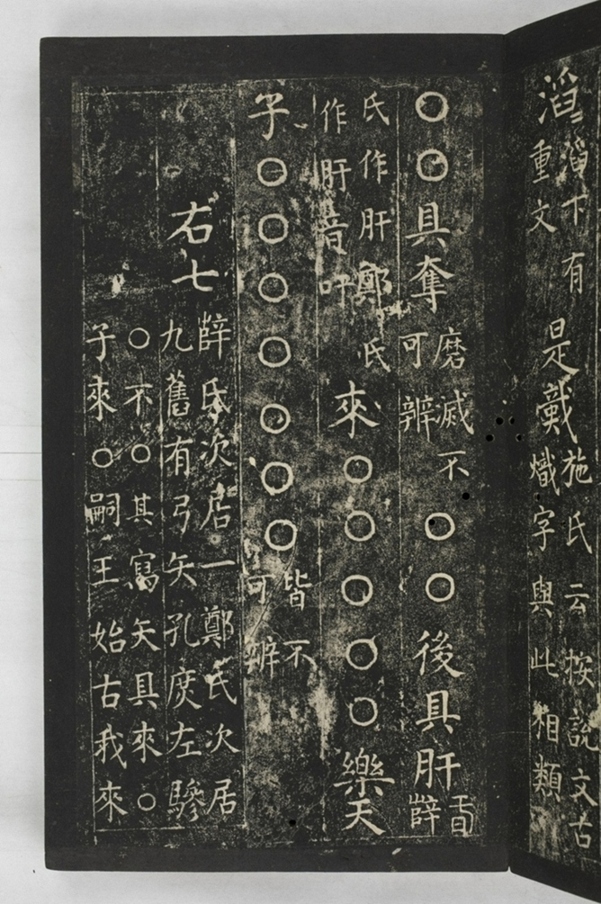 滔滔下有
重文
是㦸施氏云按說文古
熾字與此相類
○○具奪磨滅不
可辨
○○後具肝
薛
氏作肝鄭氏
作肝音吁
來○○○○○樂天
子○○○○○○○皆不
可辨
右七薛氏次居一鄭氏次居
九舊有弓矢孔庶左驂
○不○其寫矢具來○
子來○嗣王始古我來